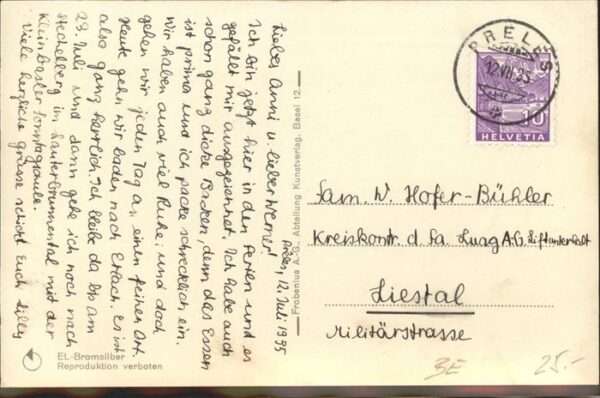 Prêles, 12. Juli 1935
Liebes Anni u. lieber Werner!
Ich bin jetzt hier in den Ferien und es
gefällt mir ausgezeichnet. Ich habe auch
schon ganz dicke Backen, denn das Essen
ist prima und ich packe schrecklich ein.
Wir haben auch viel Ruhe; und doch
gehen wir jeden Tag an einen feinen Ort.
Heute gehn wir baden nach Erlach. Es ist
also ganz herrlich. Ich bleibe da bis am
23. Juli und dann gehe ich noch nach
Stechelberg im Lauterbrunnental mit der
Kleinbasler Sonntagschule
Viele herzliche Grüsse schickt Euch Lilly
Frobenius A.-G., Abteilung Kunstverlag, Basel 12.
EL-Bromsilber
Reproduktion verboten
PRELES
12.VII.35
10
HELVETIA
Fam. W. Hofer-Bühler
Kreiskontr. d. Fa. Luag A.G.
Liestal
Militärstrasse
BE
25.-